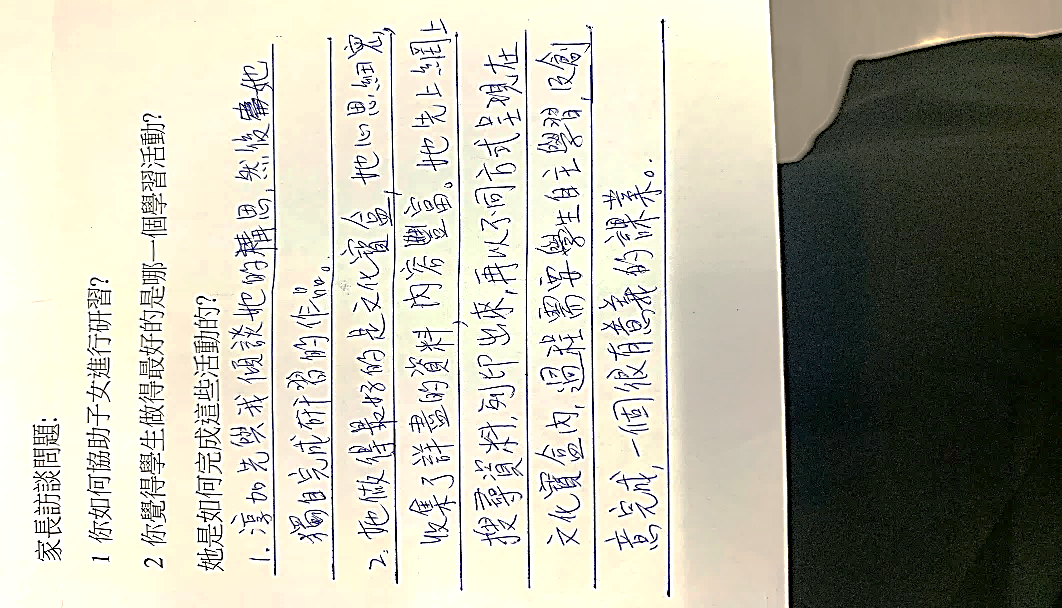 家長訪談問題:
1 你如何協助子女進行研習?
2 你覺得學生做得最好的是哪一個學習活動?
她是如何完成這些活動的?
1. 淳加先與我傾談她的構思,然後她
獨自完成研習的作品。
2. 她做得最好的是文化寶盒,她心思細密,
收集了詳盡的資料,內容豐富。她先上網上
搜尋資料,列印出來,再以不同方式呈現在
文化寶盒內,過程需要學生自主學習,及創
意完成,一個很有意義的課業。